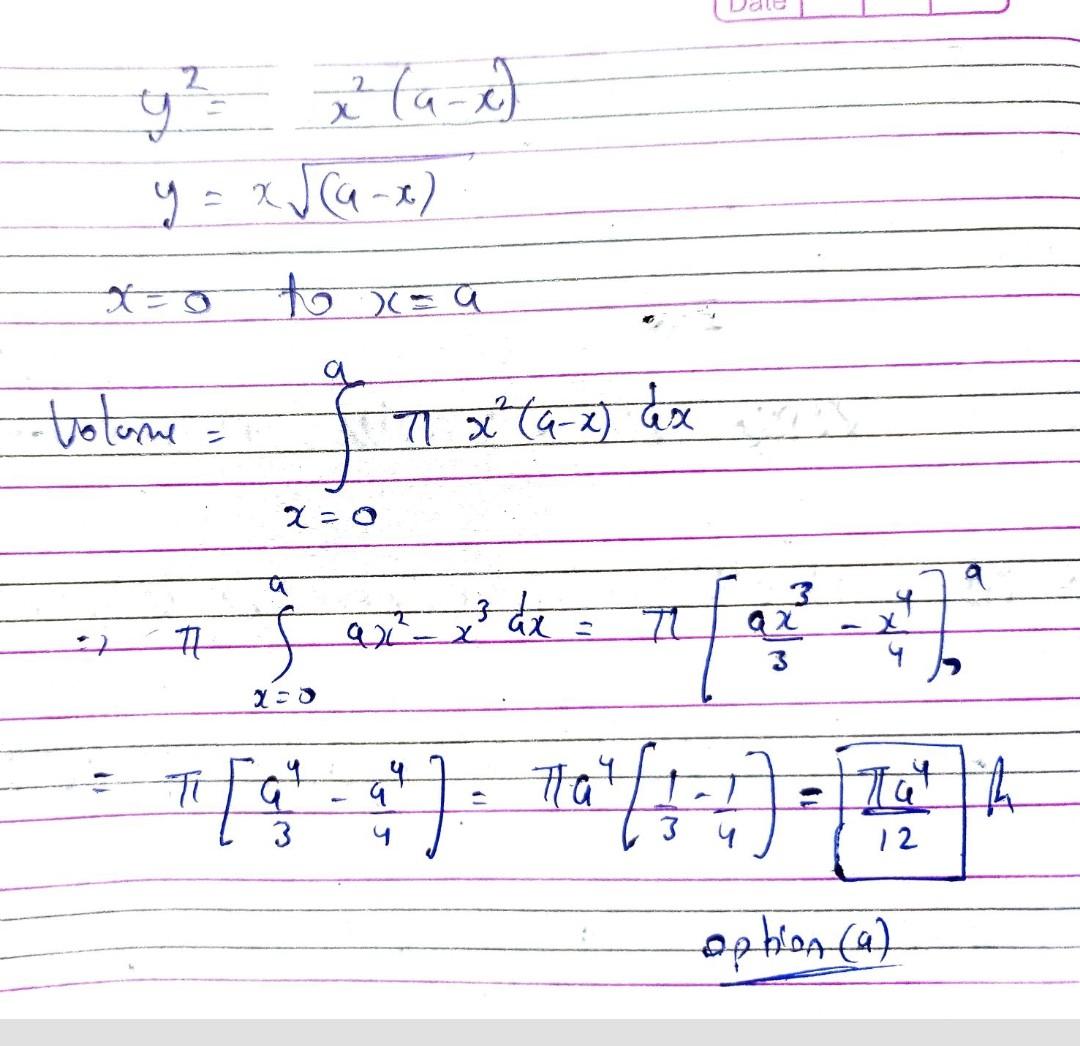 Date
y² = x²(a-x)
y = x√(a-x)
x=0 to x=a
Volume = ∫ₓ₌₀ᵃ π x²(a-x) dx
=> π ∫ₓ₌₀ᵃ ax² - x³ dx = π [ax³/3 - x⁴/4]₀ᵃ
= π [a⁴/3 - a⁴/4] = πa⁴ [1/3 - 1/4] = πa⁴/12
option (a)